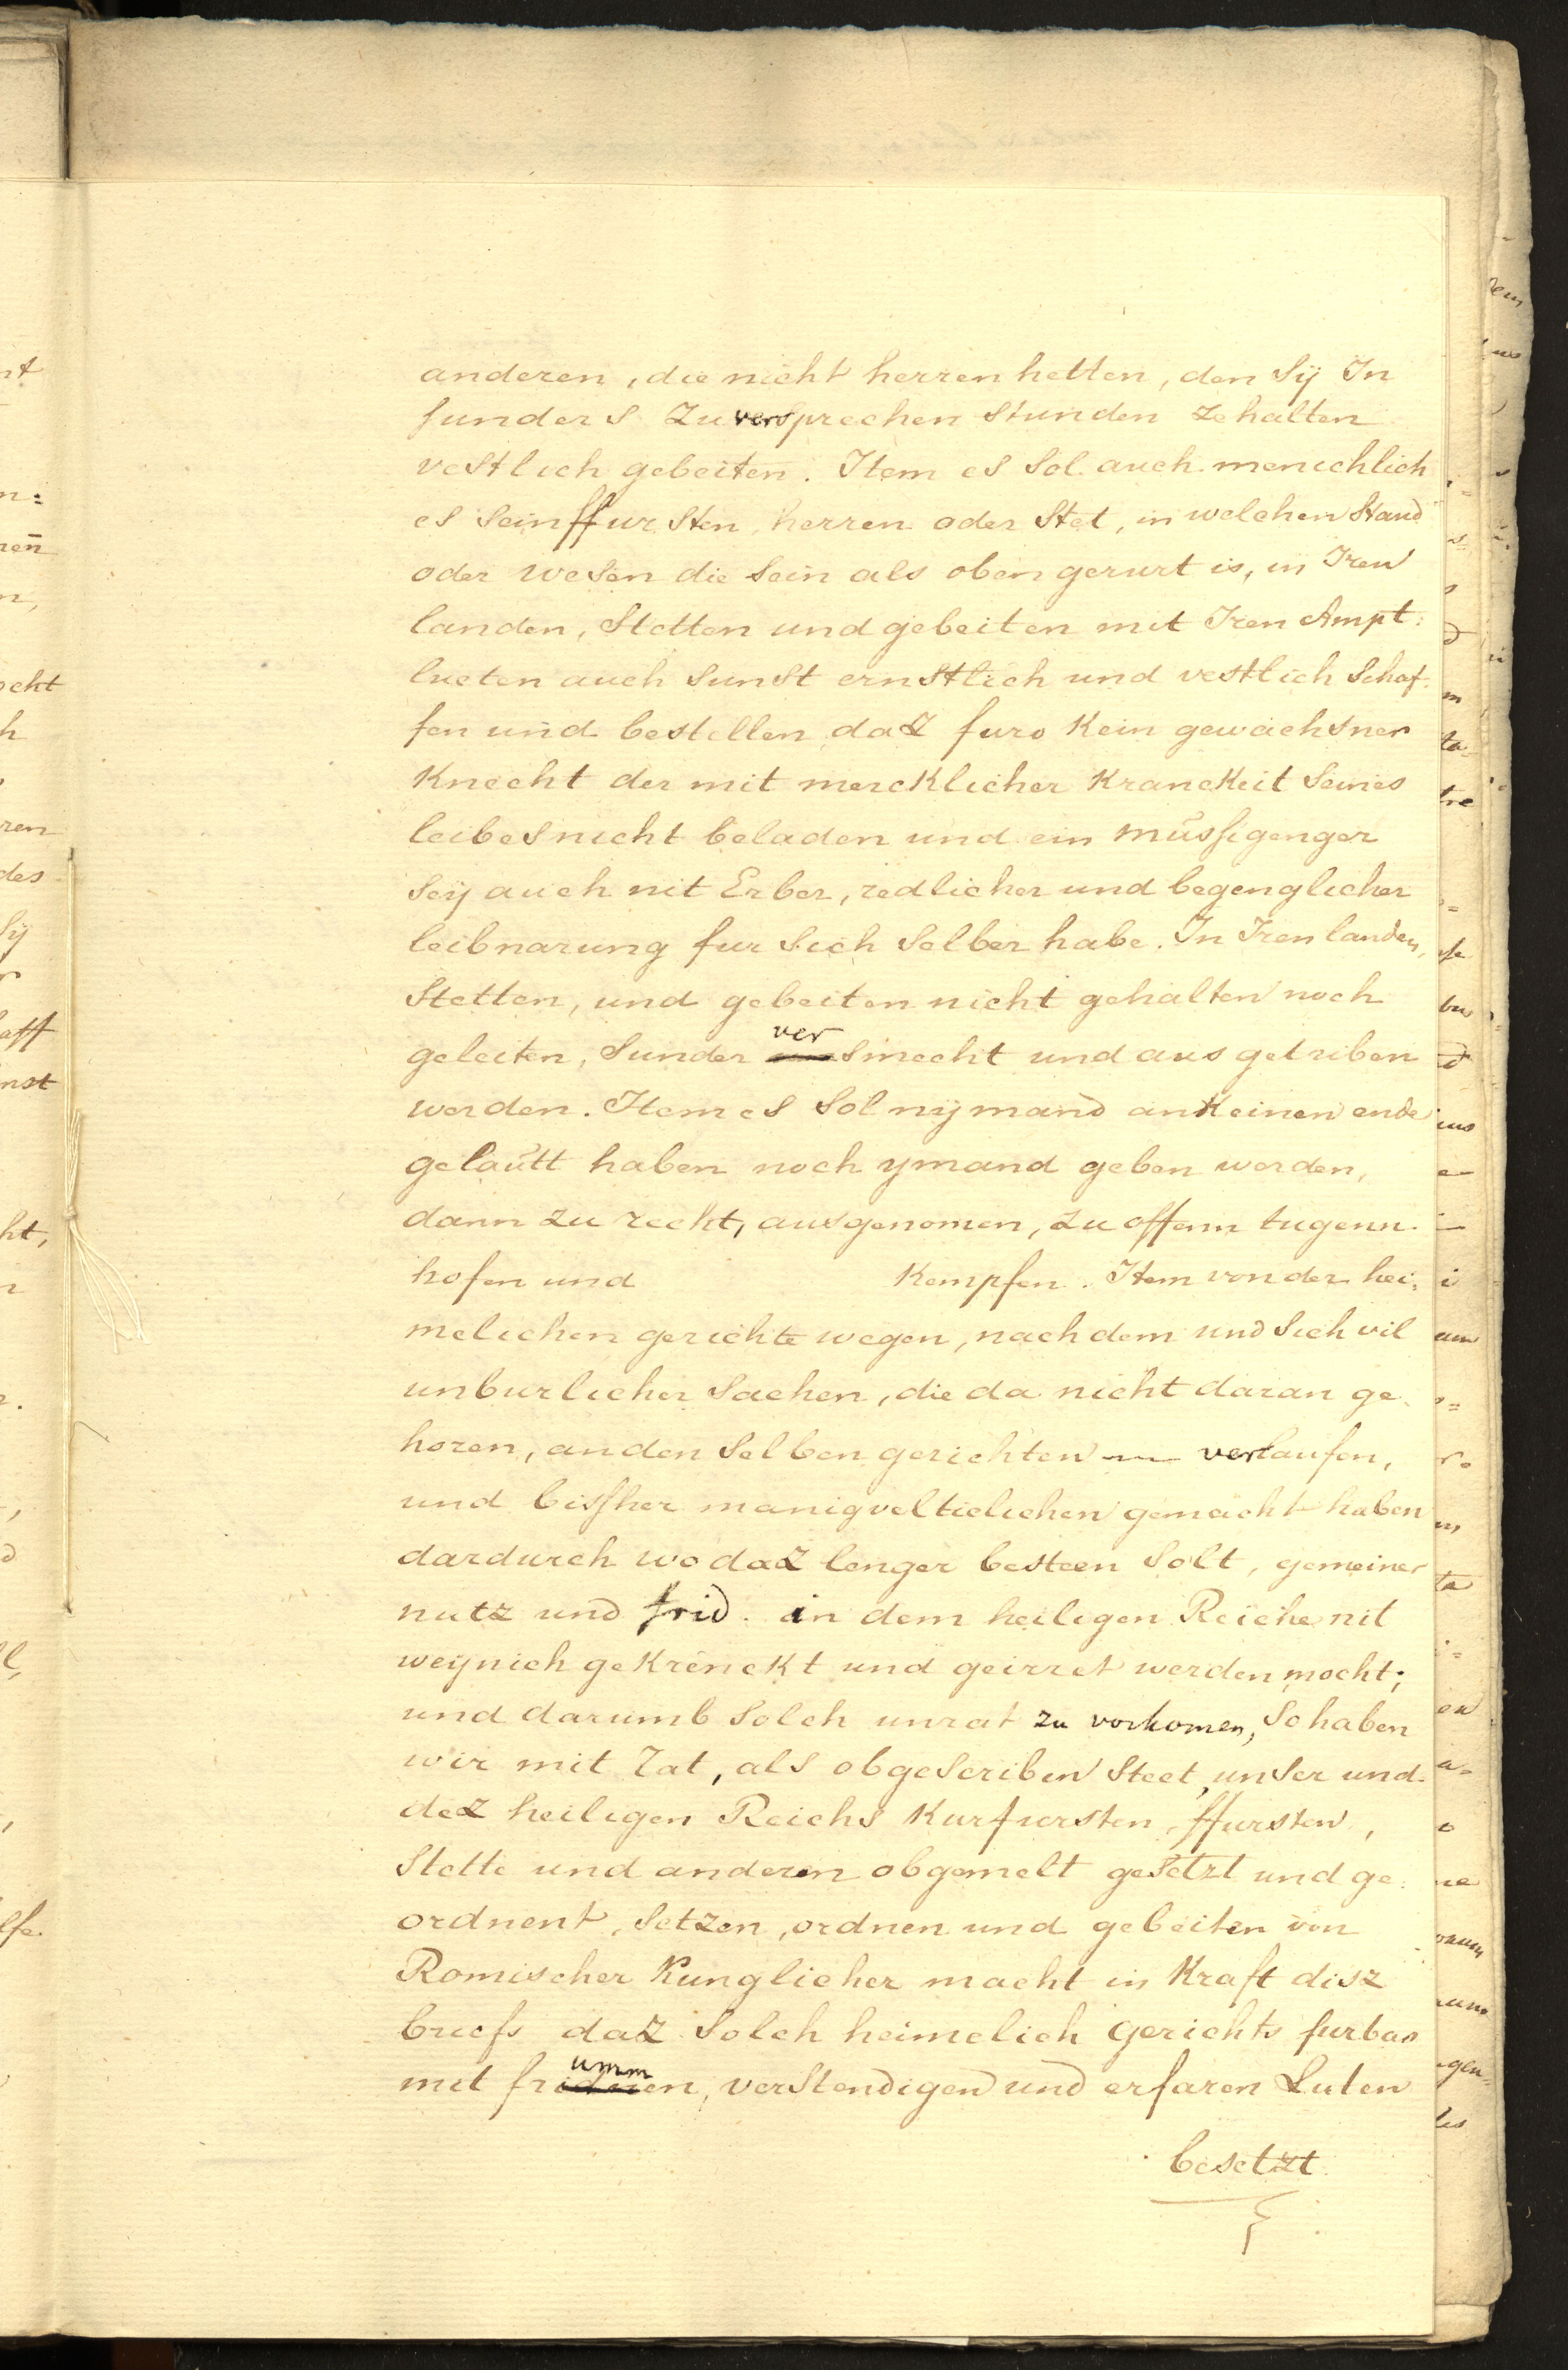 anderen, die nicht herren hetten, den Sÿ In
sunders Zu versprechen stunden ze halten
vestlich gebeiten. Item es sol auch menichlich
es sein ffursten herren oder Stet, in welchen Stand
oder wesen die sein als oben gerurt is, in Iren
landen, Stetten und gebeiten mit Iren Ampt:
lueten auch sunst ernstlich und vestlich schaf:
fen und bestellen daZ furo Kein gewachsner
Knecht der mit mercklicher Kranckeit seines
leibes nicht beladen und ein müssigenger
seÿ auch nit Erber, redlicher und begenglicher
leibnarung fur sich selber habe. In Iren landen,
Stetten, und gebeiten nicht gehalten noch
geleiten, sunder versmecht und aus getriben
werden. Item es sol nÿmand an Keinen ende
gelaütt haben noch ymand geben werden,
dann zu recht, ausgenomen, zu offenn tugenn
hofen und Kempfen. Item von der hei:
melichen gerichte wegen, nach dem und sich vil
unburlicher sachen, die da nicht daran ge:
horen, an den selben gerichten verlaufen,
und bissher manigveltielichen gemacht haben
dardurch wo daZ lenger besteen solt, gemeiner
nutz und frid. in dem heiligen Reiche nit
weÿnich geKrenckt und geirret werden mocht;
und darumb solch unrat zu vorkomen, So haben
wir mit Rat, als obgescriben steet, unser und
deZ heiligen Reichs Kurfursten, ffursten,
Stette und anderen obgemelt gesetzt und ge:
ordnent, setzen, ordnen und gebeiten von
Romischer Kunglicher macht in Kraft disz
briefs daZ solch heimelich gerichts furbas
mit frummen, verstendigen und erfaren Luten
besetzt